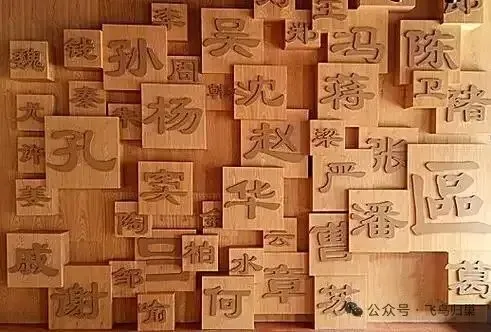 李
吴
郑
冯
陈
魏
钱
孙
周
韩
卫
褚
尤
秦
朱
杨
沈
蒋
许
孔
赵
梁
严
张
姜
窦
华
潘
區
陶
金
曹
戚
邹
三
柏
水
云
葛
谢
喻
何
章
苏
公众号·飞鸟归巢